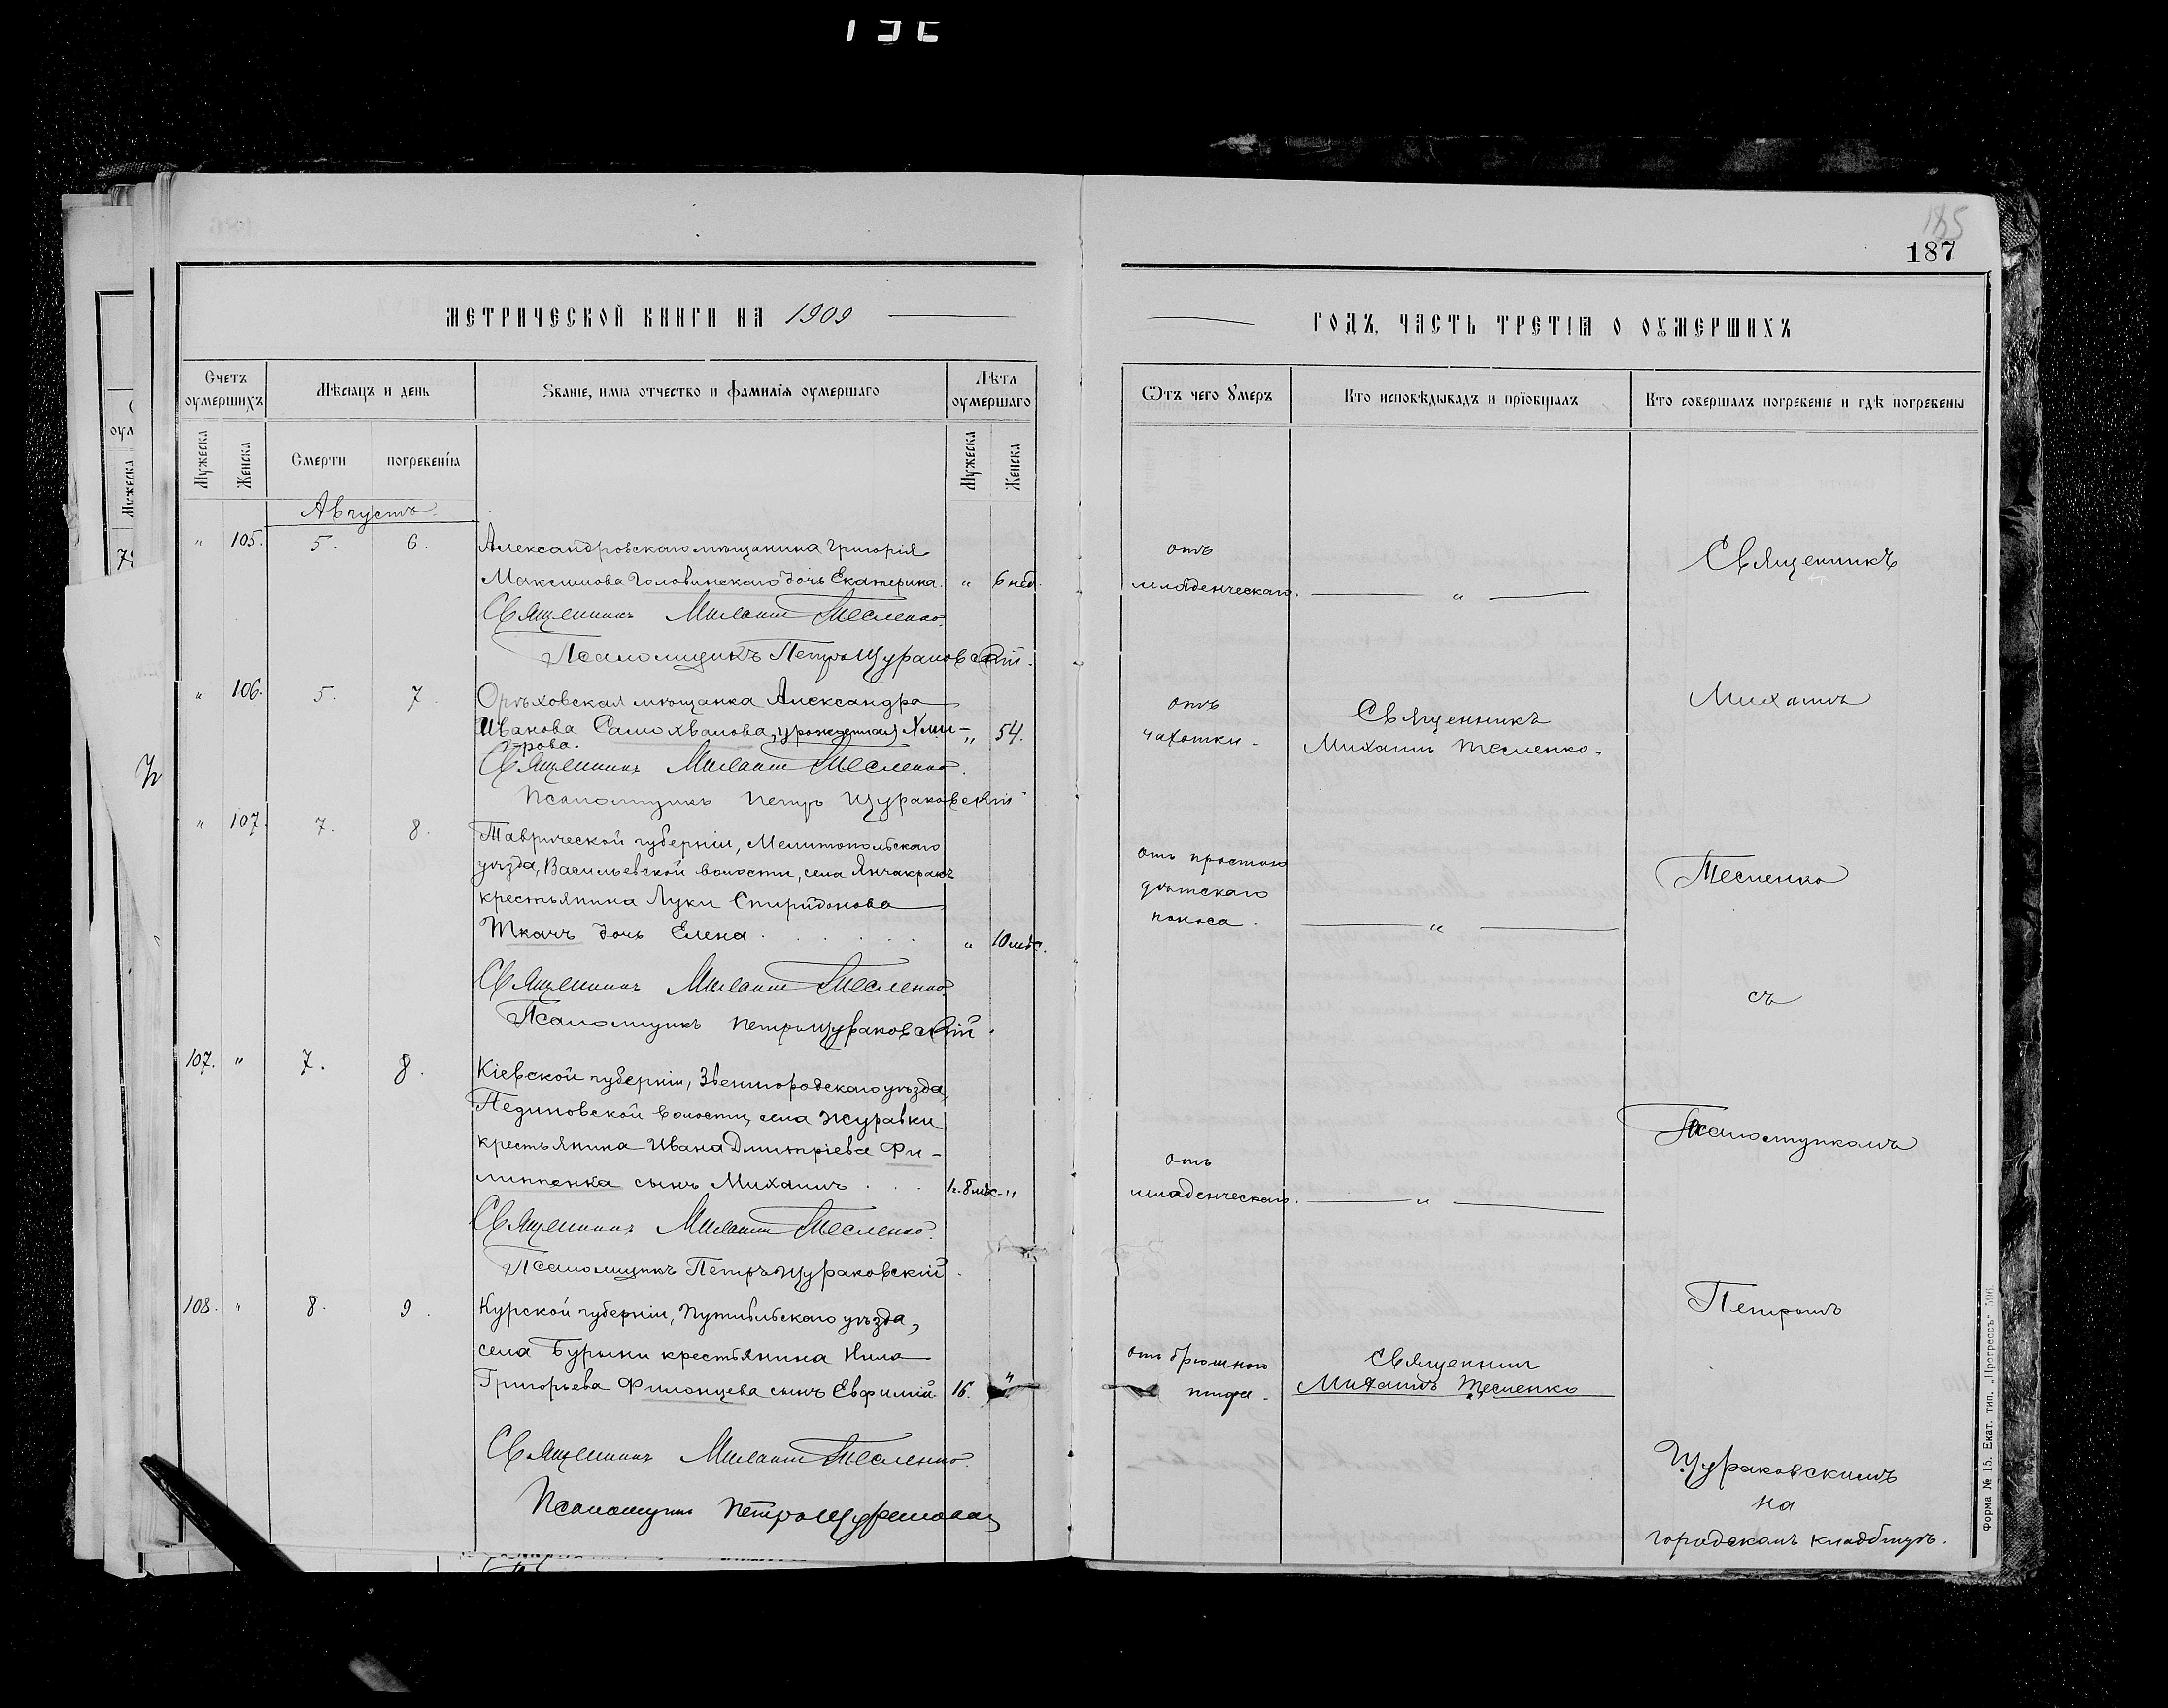 187
МЕТРИЧЕСКОЙ КНИГИ НА 1909
Счетъ оумершихъ
Мѣсяцъ и день
Званіе, имя отчество и фамилія оумершаго
Лѣта оумершаго
Мужеска
Женска
Смерти
погребенія
Мужеска
Женска
Августъ
" 105. 5. 6. Александровскаго мѣщанина Григорія
Максимова Головинскаго дочь Екатерина. " 6 нед.
Священникъ Михаилъ Тесленко.
Псаломщикъ Петръ Щураковскій.
" 106. 5. 7. Орѣховская мѣщанка Александра
Иванова Самохвалова, урожденная Хми- " 54.
рова.
Священникъ Михаилъ Тесленко.
Псаломщикъ Петръ Щураковскій
" 107. 7. 8. Таврической губерніи, Мелитопольскаго
уѣзда, Васильевской волости, села Янчакракъ
крестьянина Луки Спиридонова
Ткачъ дочь Елена. " 10 мѣс.
Священникъ Михаилъ Тесленко.
Псаломщикъ Петръ Щураковскій.
107. " 7. 8. Кіевской губерніи, Звенигородскаго уѣзда,
волости, села Журавки
крестьянина Ивана Дмитріева Фи-
липпенка сынъ Михаилъ 1 г. 8 мѣс. "
Священникъ Михаилъ Тесленко.
Псаломщикъ Петръ Щураковскій.
108. " 8. 9. Курской губерніи, Путивльскаго уѣзда,
села Бурыни крестьянина Нила
Григорьева Филонцева сынъ Евфимій 16. "
Священникъ Михаилъ Тесленко.
Псаломщикъ Петръ Щураковскій
ГОДЪ, ЧАСТЬ ТРЕТІЯ О ОУМЕРШИХЪ
Отъ чего Умеръ
Кто исповѣдывадъ и пріобщалъ
Кто совершалъ погребеніе и гдѣ погребены
отъ
младенческаго. "
отъ
чахотки.
Священникъ
Михаилъ Тесленко.
отъ простого
дѣтскаго
поноса. "
отъ
младенческаго. "
отъ брюшного
тифа.
Священникъ
Михаилъ Тесленко
Священникъ
Михаилъ
Тесленко
съ
Псаломщикомъ
Петромъ
Щураковскимъ
на
городскомъ кладбищѣ.
Форма № 15. Екат. тип. „Прогрессъ"